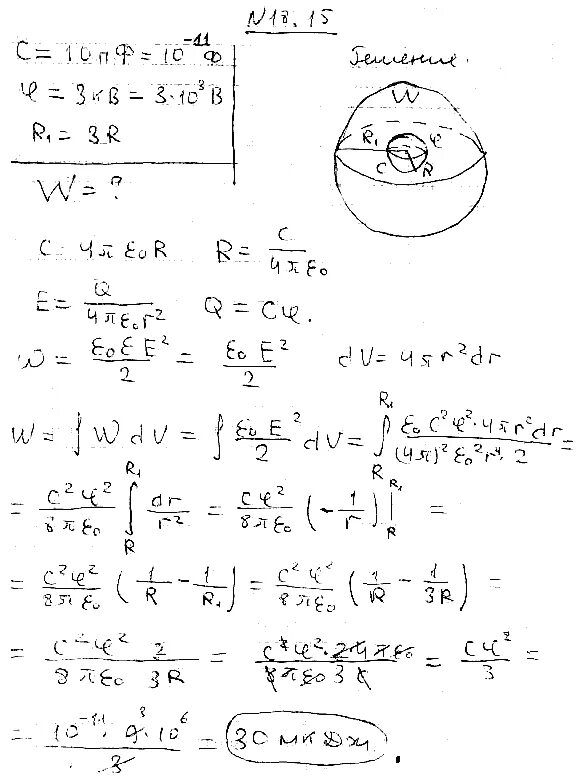 N18.15
C = 10 пФ = 10^-11 Ф
φ = 3 кВ = 3·10^3 В
R₁ = 3R
W = ?
Решение.
W
R₁ φ
C R
C = 4πε₀R R = C/(4πε₀)
E = Q/(4πε₀r²) Q = Cφ.
ω = ε₀εE²/2 = ε₀E²/2 dV = 4πr²dr
W = ∫ W dV = ∫ ε₀E²/2 dV = ∫_R^R₁ ε₀C²φ²·4πr²dr/((4π)²ε₀²r⁴·2) =
= C²φ²/(8πε₀) ∫_R^R₁ dr/r² = Cφ²/(8πε₀) (-1/r)|_R^R₁ =
= C²φ²/(8πε₀) (1/R - 1/R₁) = C²φ²/(8πε₀) (1/R - 1/3R) =
= C²φ²/(8πε₀) 2/(3R) = C²φ²·2·4πε₀/(8πε₀3C) = Cφ²/3 =
= 10^-11·9^3·10^6/3 = 30 мкДж.